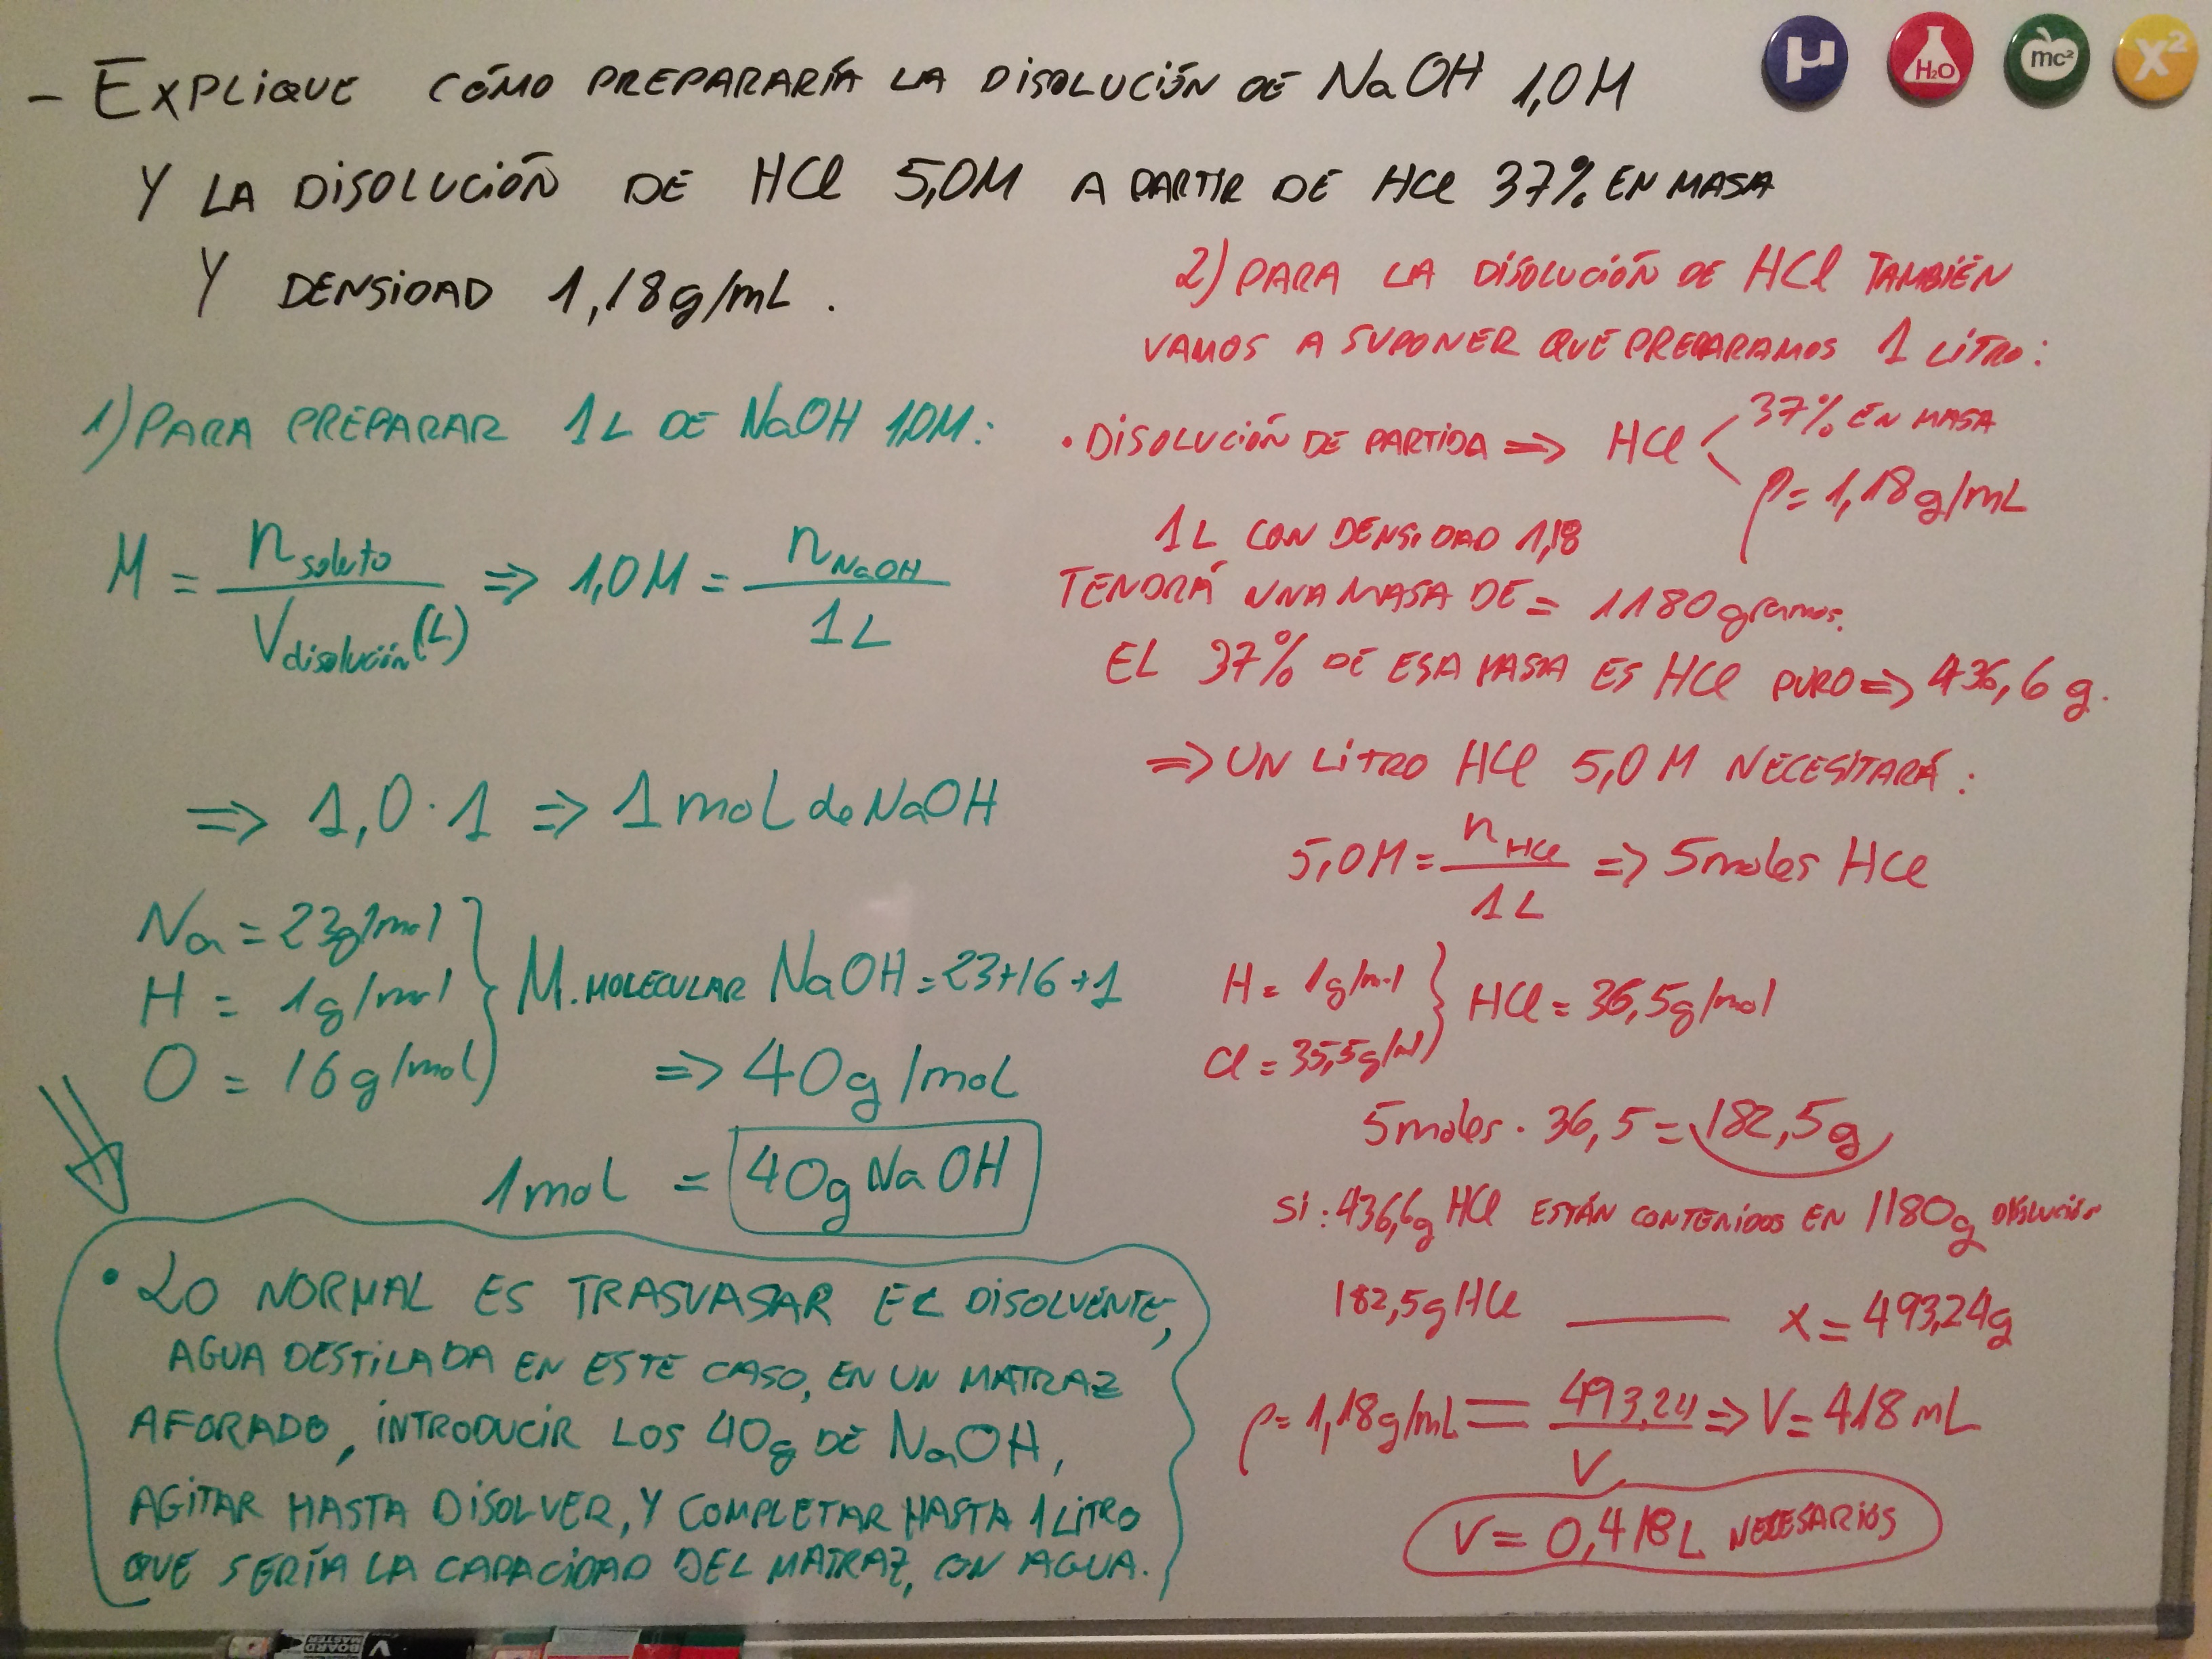 - EXPLIQUE CÓMO PREPARARÍA LA DISOLUCIÓN DE NaOH 1,0M
Y LA DISOLUCIÓN DE HCl 5,0M A PARTIR DE HCl 37% EN MASA
Y DENSIDAD 1,18g/mL.
1) PARA PREPARAR 1L DE NaOH 1,0M:
M = n soluto / V disolución (L) => 1,0M = n NaOH / 1L
=> 1,0·1 => 1 moL de NaOH
Na = 23g/mol
H = 1g/mol
O = 16g/mol
M. MOLECULAR NaOH = 23+16+1
=> 40g/moL
1moL = 40g NaOH
• LO NORMAL ES TRASVASAR EL DISOLVENTE,
AGUA DESTILADA EN ESTE CASO, EN UN MATRAZ
AFORADO, INTRODUCIR LOS 40g DE NaOH,
AGITAR HASTA DISOLVER, Y COMPLETAR HASTA 1 LITRO
QUE SERÍA LA CAPACIDAD DEL MATRAZ, CON AGUA.
2) PARA LA DISOLUCIÓN DE HCl TAMBIÉN
VAMOS A SUPONER QUE PREPARAMOS 1 LITRO:
• DISOLUCIÓN DE PARTIDA => HCl < 37% EN MASA
ρ = 1,18g/mL
1L CON DENSIDAD 1,18
TENDRÁ UNA MASA DE = 1180 gramos.
EL 37% DE ESA MASA ES HCl PURO => 436,6 g.
=> UN LITRO HCl 5,0M NECESITARÁ:
5,0M = n HCl / 1L => 5 moles HCl
H = 1g/mol
Cl = 35,5g/ml
HCl = 36,5g/mol
5 moles · 36,5 = 182,5g
SI: 436,6g HCl ESTÁN CONTENIDOS EN 1180g DISOLUCIÓN
182,5g HCl —— x = 493,24g
ρ = 1,18g/mL = 493,24 / V => V = 418 mL
V = 0,418L NECESARIOS
μ
H₂O
mc²
x²
BOARD
MASTER
V